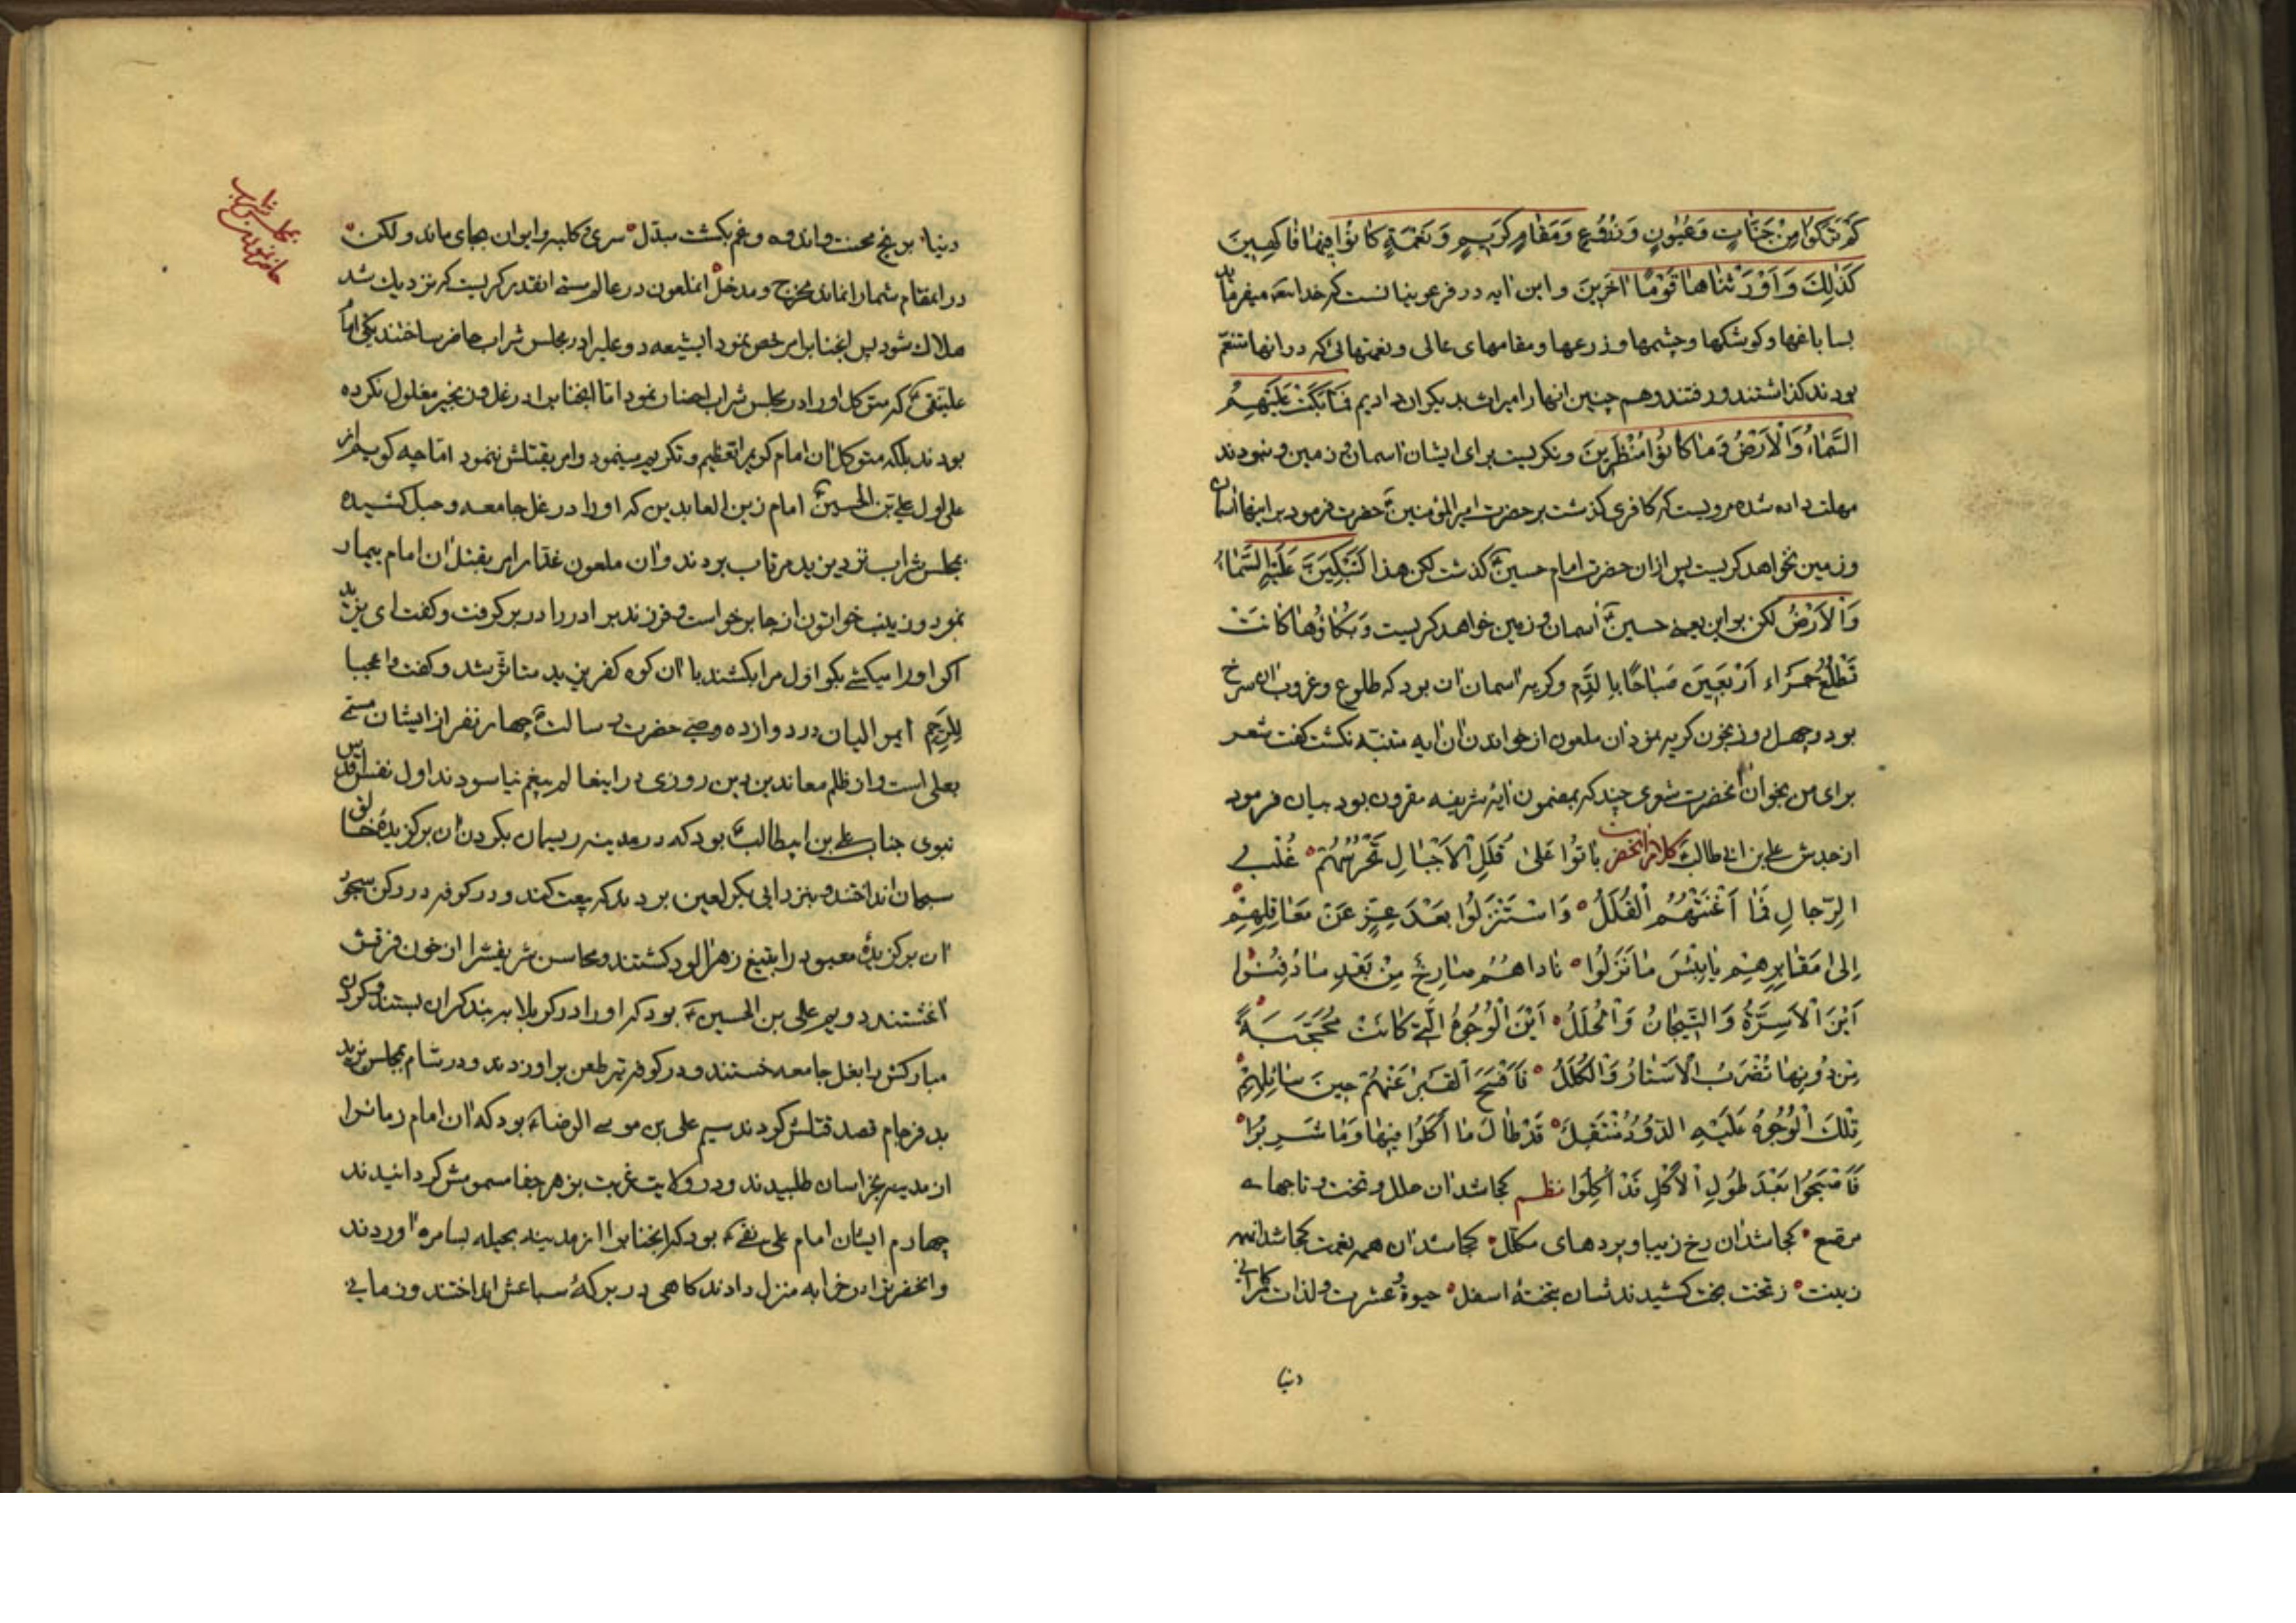 كَمْ تَرَكُوا مِنْ جَنَّاتٍ وَعُيُونٍ وَزُرُوعٍ وَمَقَامٍ كَرِيمٍ وَنَعْمَةٍ كَانُوا فِيهَا فَاكِهِينَ
كَذَلِكَ وَأَوْرَثْنَاهَا قَوْمًا آخَرِينَ و این آیه در فرعونیانست که خدا میفرماید
بسا باغها و کوشکها و چشمها و زرعها و مقامهای عالی و نعمتهائی که در آنها متنعّم
بودند کذاشتند و رفتند و هم چنین آنها را میراث بدیکران دادیم فَمَا بَكَتْ عَلَيْهِمُ
السَّمَاءُ وَالْأَرْضُ وَمَا كَانُوا مُنْظَرِينَ و نکریست برای ایشان آسمان و زمین و نبودند
مهلت داده شده مرویست که کافری کذشت بر حضرت امیر المؤمنین حضرت فرمود بر اینها آسمان
و زمین نخواهد کریست پس از ان حضرت امام حسین کذشت لكن هذا لَتَبْكِيَنَّ عَلَيْهِ السَّمَاءُ
وَالْأَرْضُ لکن بر این یعنی حسین آسمان و زمین خواهد کریست وَبُكَاؤُهَا كَانَتْ
تَطْلُعُ حَمْرَاء أَرْبَعِينَ صَبَاحًا بِالدَّمِ و کریه آسمان ان بود که طلوع و غروب ان سرخ
بود و چهل روز بخون کریه نمود ان ملعون از خواندن ان آیه متنبّه نکشت کفت شعر
برای من بخوان آنحضرت شعری چند که بمضمون آیه شریفه مقرون بود بیان فرمود
از جدش علی بن ابی طالب بَاتُوا عَلَى قُلَلِ الْأَجْبَالِ تَحْرُسُهُمْ غُلْبُ
الرِّجَالِ فَمَا أَغْنَتْهُمُ الْقُلَلُ وَاسْتَنْزَلُوا بَعْدَ عِزٍّ عَنْ مَعَاقِلِهِمْ
إِلَى مَقَابِرِهِمْ يَا بِئْسَ مَا نَزَلُوا نَادَاهُمْ صَارِخٌ مِنْ بَعْدِ مَا دُفِنُوا
أَيْنَ الْأَسِرَّةُ وَالتِّيجَانُ وَالْحُلَلُ أَيْنَ الْوُجُوهُ الَّتِي كَانَتْ مُحَجَّبَةً
مِنْ دُونِهَا تُضْرَبُ الْأَسْتَارُ وَالْكُلَلُ فَأَفْصَحَ الْقَبْرُ عَنْهُمْ حِينَ سَائِلِهِمْ
تِلْكَ الْوُجُوهُ عَلَيْهِ الدُّودُ تَنْتَقِلُ قَدْ طَالَ مَا أَكَلُوا فِيهَا وَمَا شَرِبُوا
فَأَصْبَحُوا بَعْدَ طُولِ الْأَكْلِ قَدْ أُكِلُوا نظم کجا شد ان حلل و تخت و تاجهای
مرصّع کجا شد ان رخ زیبا و پردهای مکلّل کجا شد ان همه نعمت کجا شد انهمه
زینت ز تخت بخت کشیدندشان بتختهٔ اسفل حیوة و عشرت و لذات کامرانی
دنیا
دنیا برنج محنت و اندوه و غم بکشت مبدّل سری و کلبه و ایوان بجای ماند و لکن
در انمقام شما را نماند مخرج و مدخل انملعون در عالم مستی انقدر کریست که نزدیک شد
هلاک شود پس انجناب را مرخص نمود ایشیعه دو علی را در مجلس شراب حاضر ساختند یکی امام
علینقی که متوکل او را در مجلس شراب احضار نمود امّا انجناب را در غل و زنجیر مغلول نکرده
بودند بلکه متوکل ان امام کریم را تعظیم و تکریم مینمود و امر بقتلش ننمود امّا چه کویم از
علی اول علی بن الحسین امام زین العابدین که او را در غل جامعه و حبل کشیده
بمجلس شراب نزد یزید مرتاب بردند و ان ملعون غدّار امر بقتل ان امام بیمار
نمود و زینب خواتون از جا برخواست و فرزند برادر را در بر کرفت و کفت ای یزید
اکر او را میکشی بکو اول مرا بکشند با ان کوه کفر یزید متاثّر شد و کفت وا عجبا
لِلرَّحِم ایموالیان در دوازده وصی حضرت رسالت چهار نفر از ایشان مسمّی
بعلی است و از ظلم معاندین دین روزی در اینعالم بیغم نیاسودند اول نفس اقدس
نبوی جناب علی بن ابیطالب بود که در مدینه ریسمان بکردن ان برکزیدهٔ خالق
سبحان انداختند و بنزد ابی بکر لعین بردند که بیعت کند و در کوفه در رکن سجود
ان برکزیدهٔ معبود را بتیغ زهر آلود کشتند و محاسن شریفش را از خون فرقش
آغشتند دویم علی بن الحسین بود که او را در کربلا به بند کران بستند و کردن
مبارکش را بغل جامعه خستند و در کوفه تیر طعن بر او زدند و در شام بمجلس یزید
بد فرجام قصد قتلش کردند سیم علی بن موسی الرضا بود که ان امام زمانرا
از مدینه بخراسان طلبیدند و در ولایت غربت بزهر جفا مسمومش کردانیدند
چهارم ایشان امام علی نقی بود که انجناب را از مدینه بحیله بسامره آوردند
و انحضرترا در خرابه منزل دادند کاهی در برکهٔ سباعش انداختند و زمانی